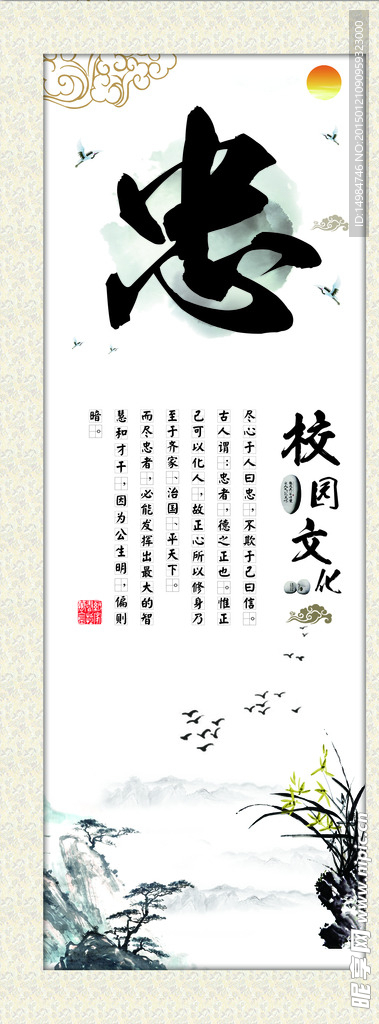 忠
校园文化
尽心于人曰忠,不欺于己曰信。
古人谓:忠者,德之正也。惟正
己可以化人,故正心所以修身乃
至于齐家、治国、平天下。
而尽忠者,必能发挥出最大的智
慧和才干,因为公生明,偏则
暗。
ID:14984746 NO:20150121090959323000
昵享网 www.nipic.cn